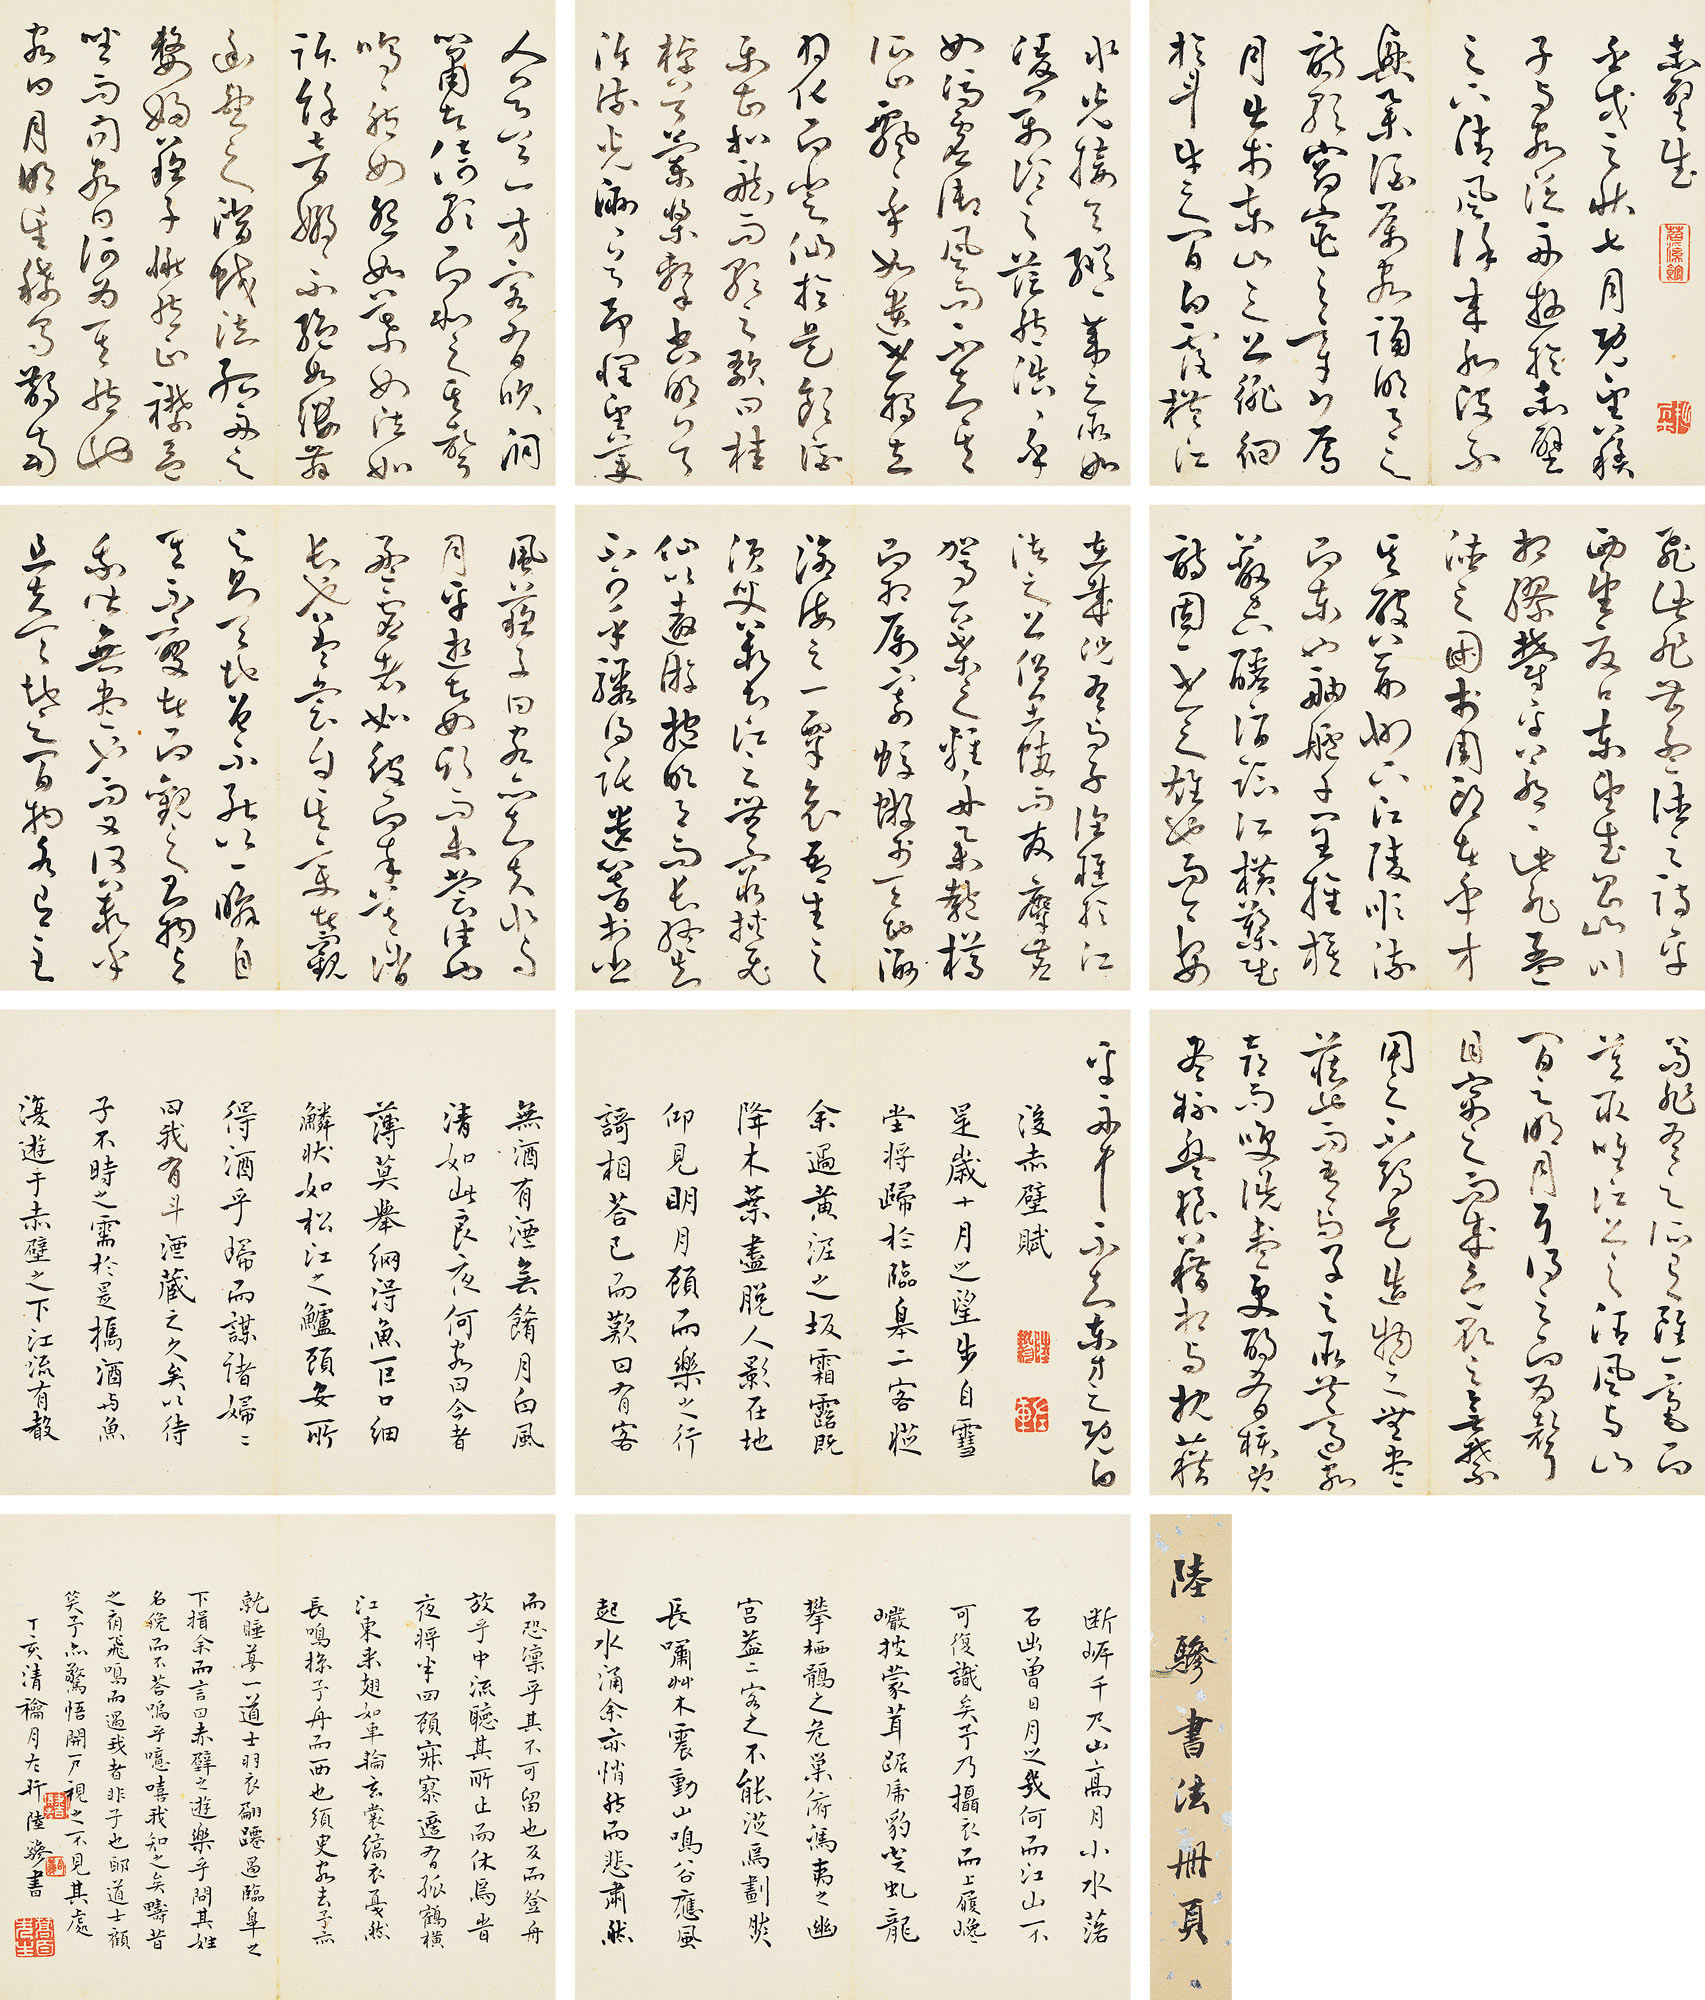 赤壁賦
壬戌之秋七月既望蘇
子與客泛舟遊於赤壁
之下清風徐來水波不
興舉酒屬客誦明月之
詩歌窈窕之章少焉
月出於東山之上徘徊
於斗牛之間白露橫江
水光接天縱一葦之所如
凌萬頃之茫然浩浩乎
如馮虛御風而不知其
所止飄飄乎如遺世獨立
羽化而登仙於是飲酒
樂甚扣舷而歌之歌曰桂
棹兮蘭槳擊空明兮
泝流光渺渺兮予懷望美
人兮天一方客有吹洞
簫者倚歌而和之其聲
嗚嗚然如怨如慕如泣如
訴餘音嫋嫋不絕如縷舞
幽壑之潛蛟泣孤舟之
嫠婦蘇子愀然正襟危
坐而問客曰何為其然也
客曰月明星稀烏鵲南
飛此非曹孟德之詩乎
西望夏口東望武昌山川
相繆鬱乎蒼蒼此非孟
德之困於周郎者乎方
其破荊州下江陵順流
而東也舳艫千里旌旗
蔽空釃酒臨江橫槊賦
詩固一世之雄也而今安
在哉況吾與子漁樵於江
渚之上侶魚蝦而友麋鹿
駕一葉之輕舟舉匏樽
而相屬寄蜉蝣於天地渺
滄海之一粟哀吾生之
須臾羨長江之無窮挾飛
仙以遨遊抱明月而長終知
不可乎驟得託遺響於悲
風蘇子曰客亦知夫水與
月乎逝者如斯而未嘗往也
盈虛者如彼而卒莫消
長也蓋將自其變者觀
之則天地曾不能以一瞬自
其不變者而觀之則物與
我皆無盡也而又何羨乎
且夫天地之間物各有主
苟非吾之所有雖一毫而
莫取惟江上之清風與山
間之明月耳得之而為聲
目寓之而成色取之無禁
用之不竭是造物之無盡
藏也而吾與子之所共適客
喜而笑洗盞更酌肴核既
盡杯盤狼藉相與枕藉
乎舟中不知東方之既白
後赤壁賦
是歲十月之望步自雪
堂將歸於臨皋二客從
余過黃泥之坂霜露既
降木葉盡脫人影在地
仰見明月顧而樂之行
謌相答已而歎曰有客
無酒有酒無餚月白風
清如此良夜何客曰今者
薄莫舉網得魚巨口細
鱗狀如松江之鱸顧安所
得酒乎歸而謀諸婦二
曰我有斗酒藏之久矣以待
子不時之需於是攜酒与魚
復遊于赤壁之下江流有聲
斷岸千尺山高月小水落
石出曾日月之幾何而江山不
可復識矣予乃攝衣而上履巉
巖披蒙茸踞虎豹登虬龍
攀栖鶻之危巢俯馮夷之幽
宫蓋二客之不能從焉劃然
長嘯艸木震動山鳴谷應風
起水涌余亦悄然而悲肅然
而恐凛乎其不可留也反而登舟
放乎中流聽其所止而休焉皆
夜將半四顧寂寥適有孤鶴橫
江東来翅如車輪玄裳縞衣戛然
長鳴掠予舟而西也須臾客去予亦
就睡夢一道士羽衣翩躚過臨皐之
下揖余而言曰赤壁之遊樂乎問其姓
名俛而不答嗚乎噫嘻我知之矣疇昔
之夜飛鳴而過我者非子也耶道士顧
笑予亦驚悟開戶視之不見其處
丁亥清龢月左行陸驂書
陸驂書法冊頁